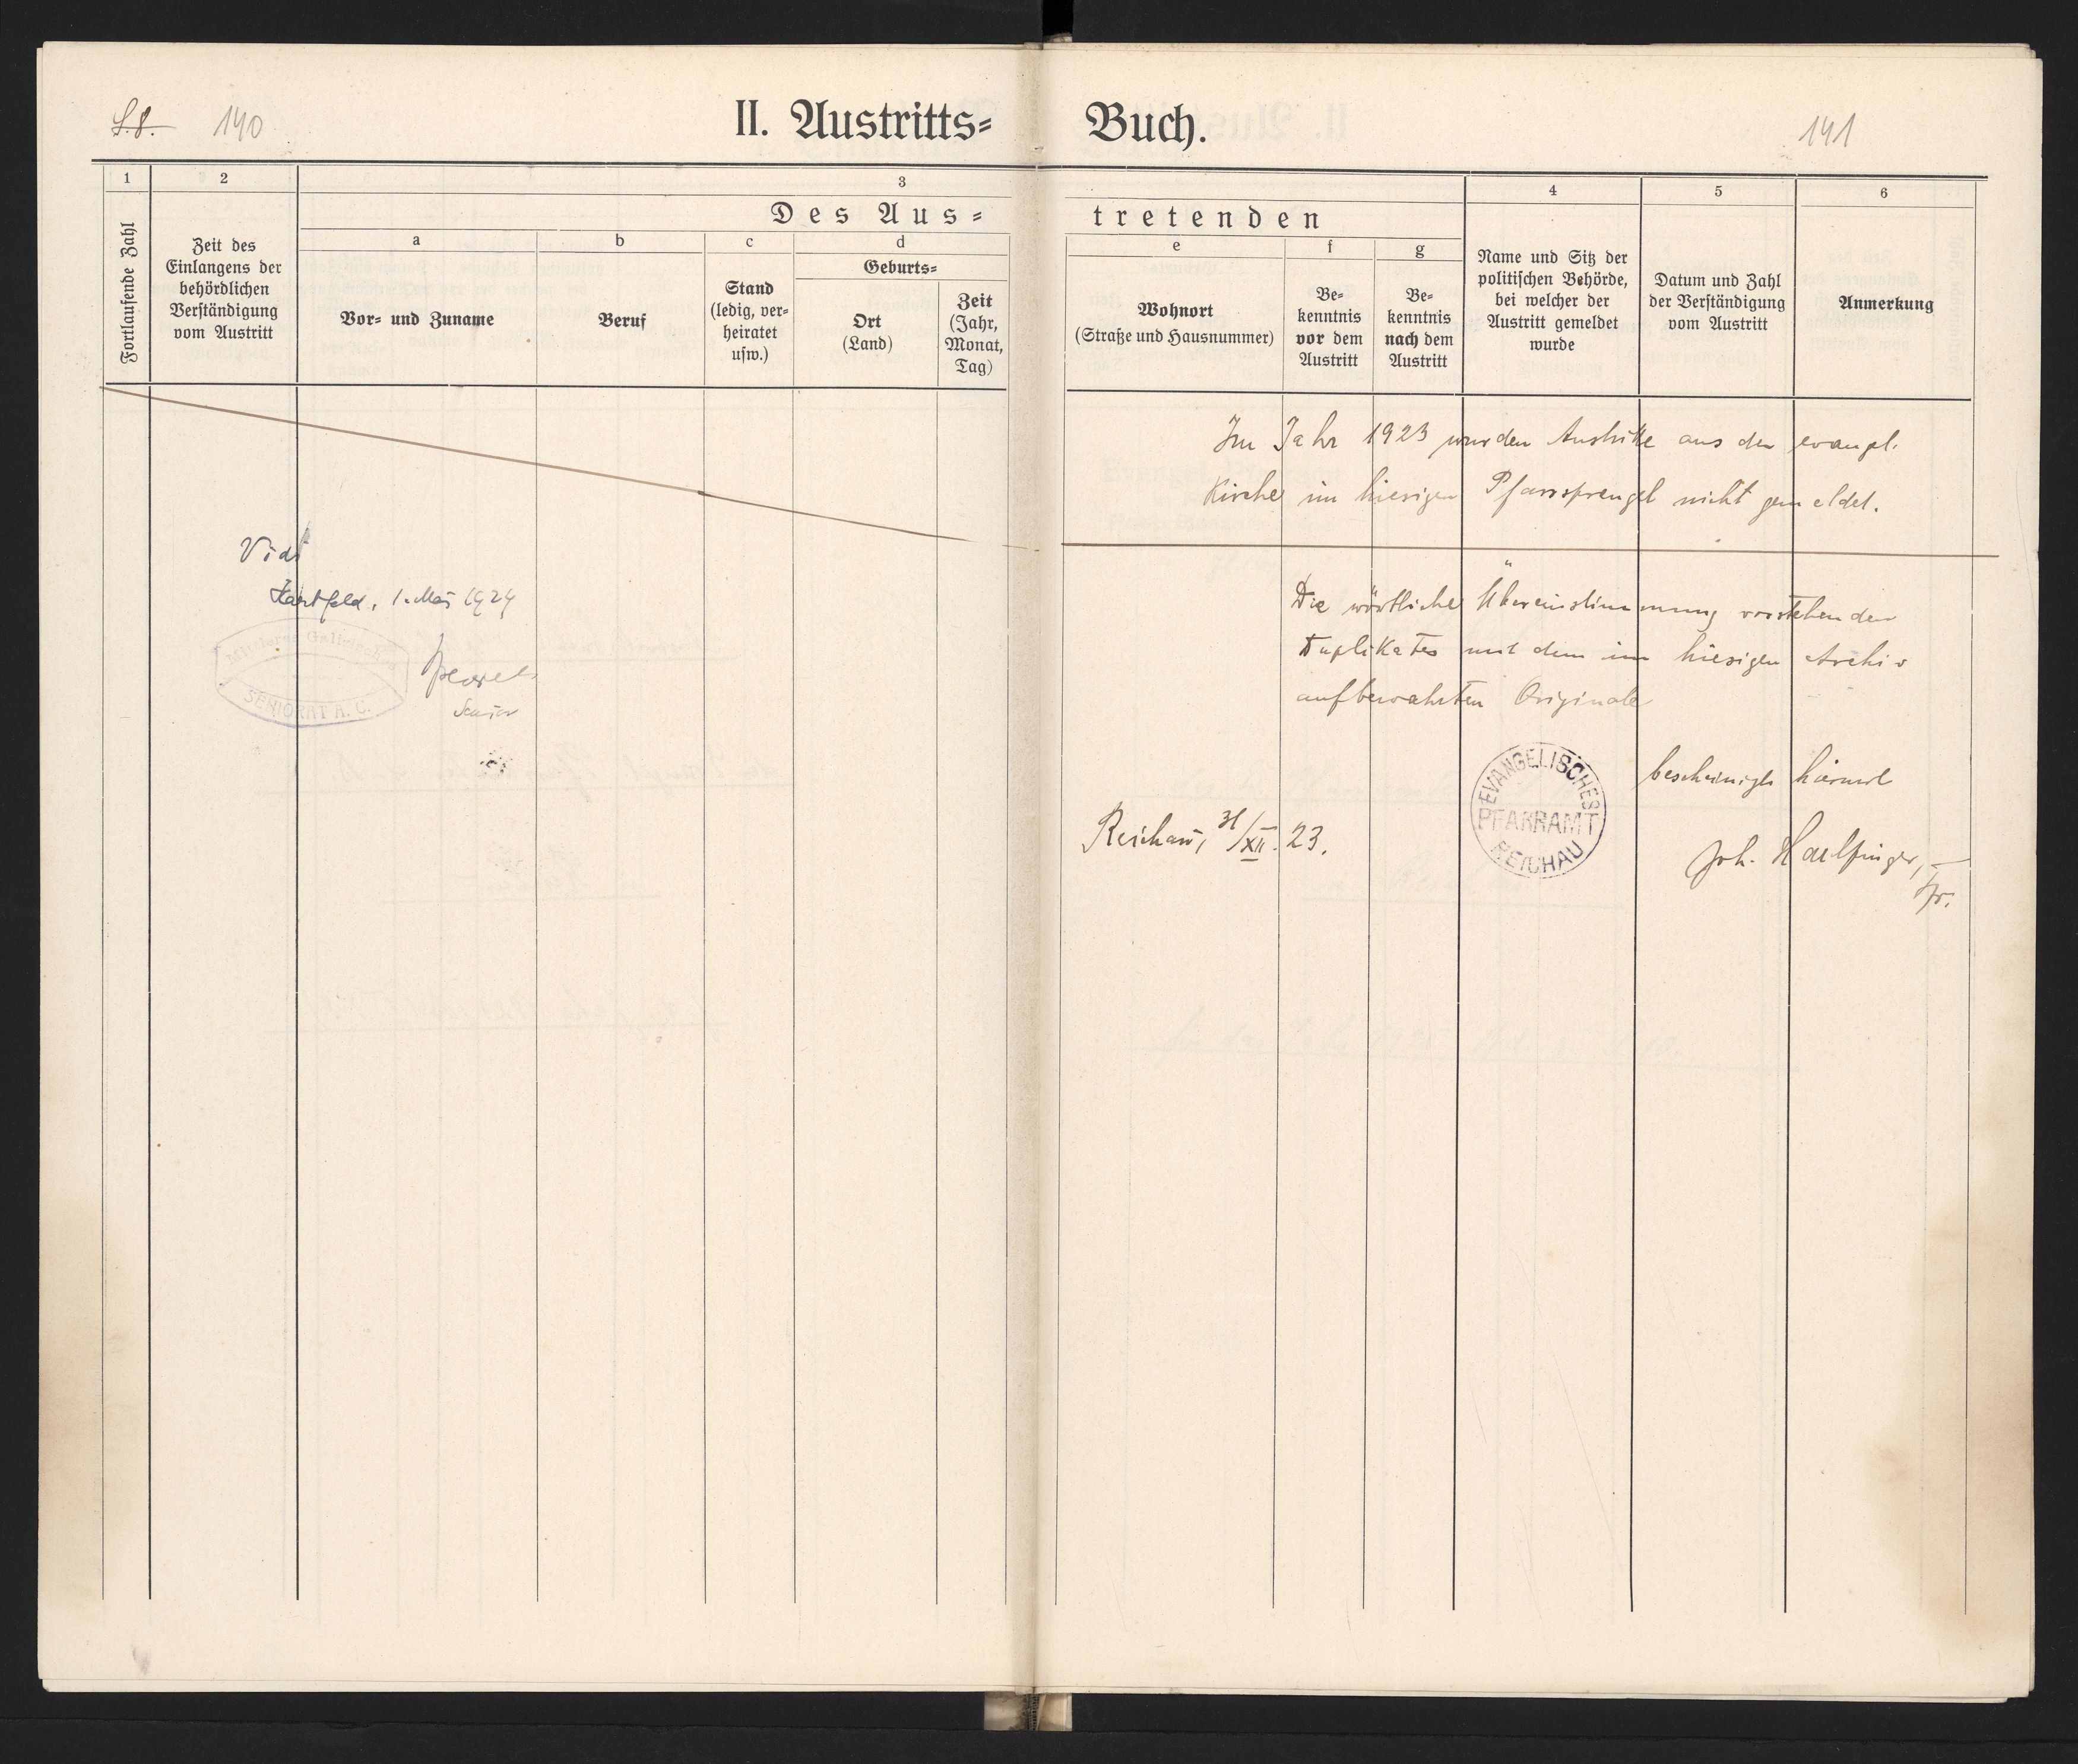 S. 8. 140
II. Austritts-Buch.
141
1
2
3
4
5
6
Des Austretenden
a
b
c
d
e
f
g
Fortlaufende Zahl
Zeit des
Einlangens der
behördlichen
Verständigung
vom Austritt
Vor- und Zuname
Beruf
Stand
(ledig, ver-
heiratet
usw.)
Geburts-
Ort
(Land)
Zeit
(Jahr,
Monat,
Tag)
Wohnort
(Straße und Hausnummer)
Be-
kenntnis
vor dem
Austritt
Be-
kenntnis
nach dem
Austritt
Name und Sitz der
politischen Behörde,
bei welcher der
Austritt gemeldet
wurde
Datum und Zahl
der Verständigung
vom Austritt
Anmerkung
Im Jahr 1923 wurden Austritte aus der evangel.
Kirche im hiesigen Pfarrsprengel nicht gemeldet.
Vidi
Hartfeld, 1. Mai 1924
Senior
SENIORAT A. C.
Die wörtliche Übereinstimmung vorstehenden
Duplikates mit dem im hiesigen Archiv
aufbewahrten Originale
bescheinigt hiermit
EVANGELISCHES
PFARRAMT
REICHAU
Reichau, 31/XII. 23.
Joh. Haelfinger,
Pfr.